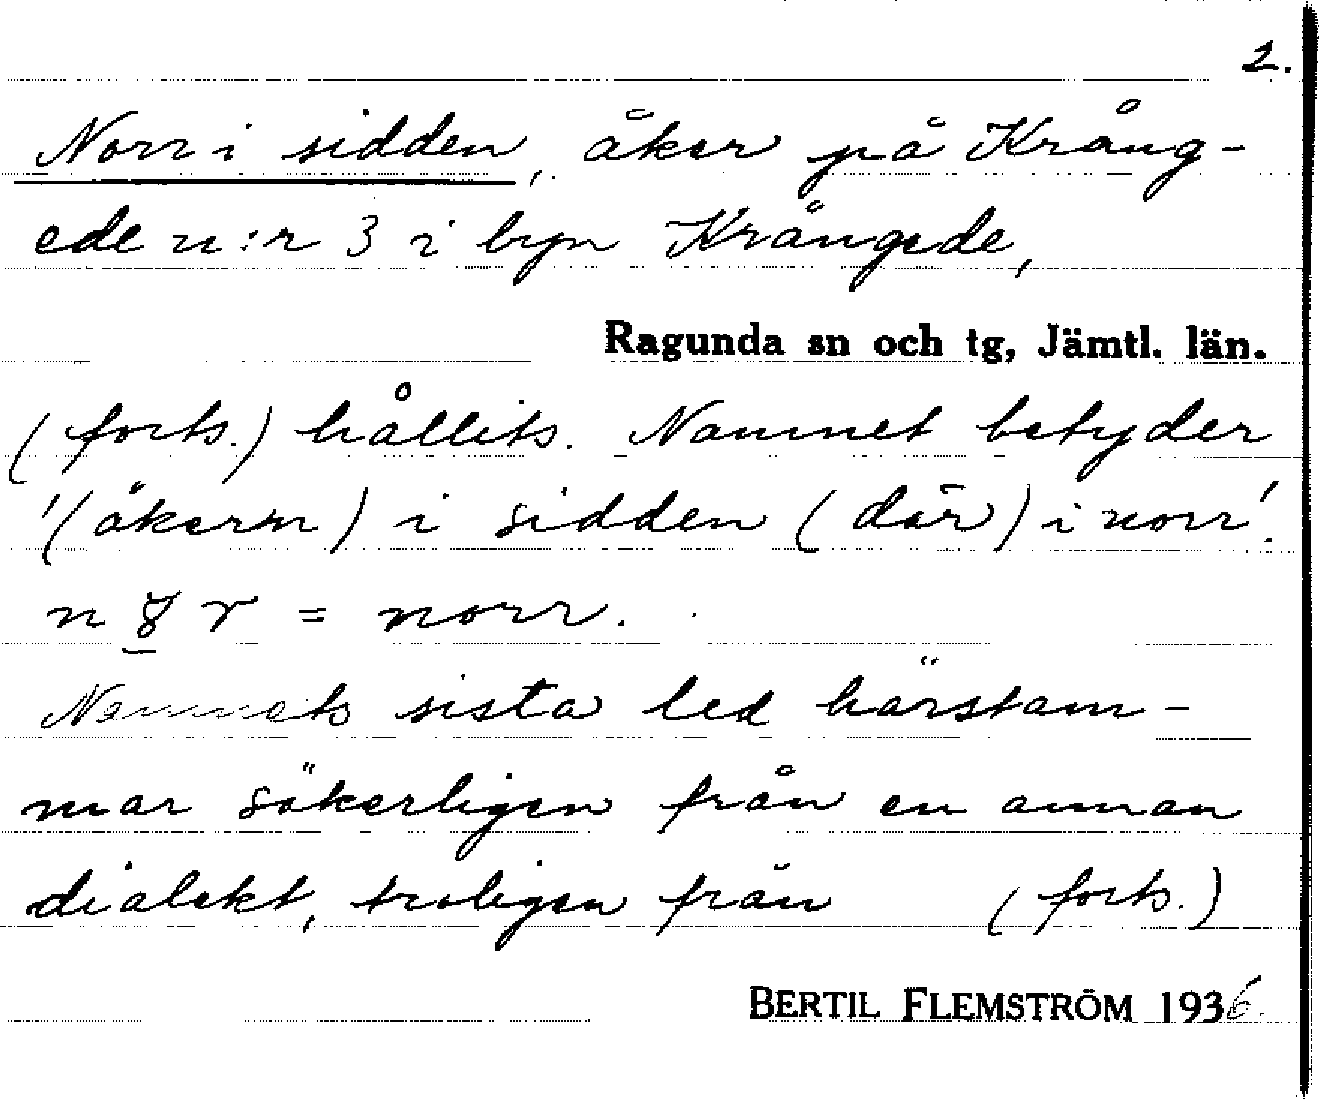 2.
Norr i sidden, åker på Krång-
ede n:r 3 i byn Krångede,
Ragunda sn och tg, Jämtl. län.
(forts.) hållits. Namnet betyder
'(åkern) i sidden (där) i norr'.
n r = norr.
Namnets sista led härstam-
mar säkerligen från en annan
dialekt, troligen från (forts.)
BERTIL FLEMSTRÖM 1936.